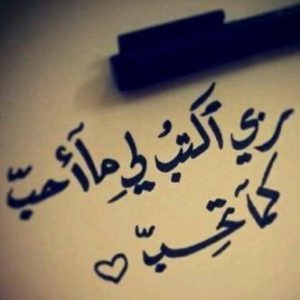 ربي أكتبُ لي ما أحبّ
كما تحِبّ ♡